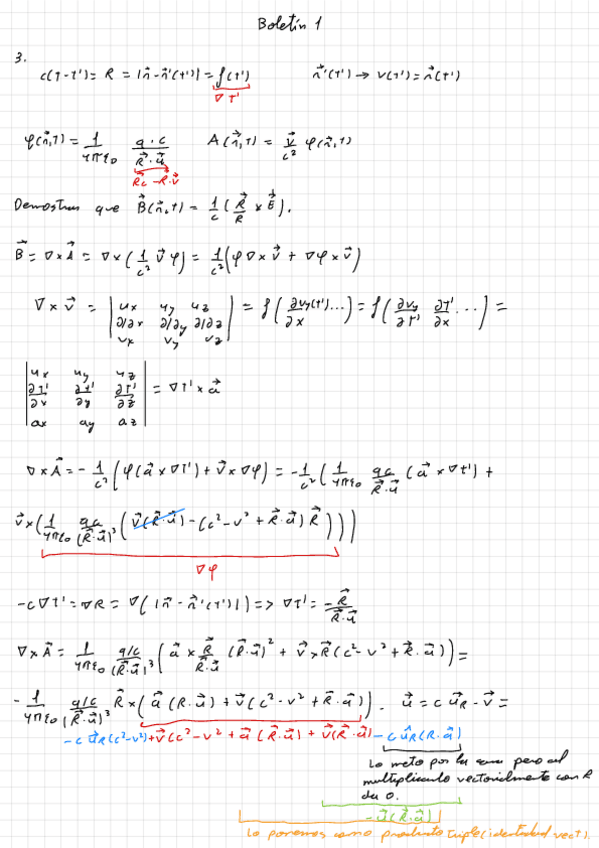 Boletín 1
3.
c(T-T') = R = |r⃗ - r⃗'(t')| = f(t') r⃗'(t') → v(t') = ṙ⃗(t')
∇T'
φ(r⃗,t) = 1/4πε₀ q·c/R⃗·u⃗ A(r⃗,t) = v⃗/c² φ(r⃗,t)
Rc - R⃗·v⃗
Demostrar que B⃗(r⃗,t) = 1/c (R⃗/R × E⃗).
B⃗ = ∇×A⃗ = ∇×(1/c² v⃗φ) = 1/c² (φ∇×v⃗ + ∇φ×v⃗)
∇×v⃗ = |ux uy uz| = f(∂vy(t')/∂x ...) = f(∂vy/∂T' ∂T'/∂x ...) =
∂/∂x ∂/∂y ∂/∂z
vx vy vz
|ux uy uz|
∂T'/∂x ∂T'/∂y ∂T'/∂z = ∇T' × a⃗
ax ay az
∇×A⃗ = -1/c² (φ(a⃗×∇T') + v⃗×∇φ) = -1/c² (1/4πε₀ qc/R⃗·u⃗ (a⃗×∇t') +
v⃗×(1/4πε₀ qc/(R⃗·u⃗)³ (v⃗(R⃗·u⃗) - (c²-v²+R⃗·a⃗)R⃗)))
∇φ
-c∇T' = ∇R = ∇(|r⃗-r⃗'(t')|) => ∇T' = -R⃗/R⃗·u⃗
∇×A⃗ = 1/4πε₀ q/c/(R⃗·u⃗)³ (a⃗ × R⃗/R⃗·u⃗ (R⃗·u⃗)² + v⃗×R⃗(c²-v²+R⃗·a⃗)) =
-1/4πε₀ q/c/(R⃗·u⃗)³ R⃗×(a⃗(R·u⃗) + v⃗(c²-v²+R⃗·a⃗)). u⃗ = c u⃗R - v⃗ =
-c u⃗R(c²-v²)+v⃗(c²-v²+a⃗(R⃗·u⃗)+v⃗(R⃗·a⃗) -c u⃗R(R·a⃗)
Lo meto por la cara pero al
multiplicarlo vectorialmente con R
da 0.
-u⃗(R⃗·a⃗)
Lo ponemos como producto triple (identidad vect).